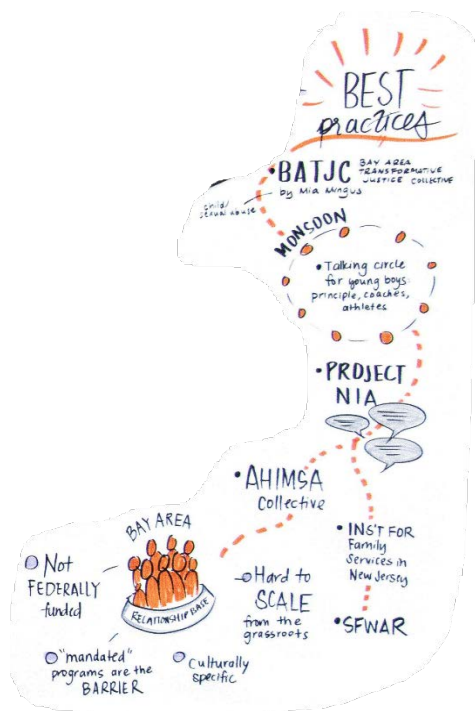 BEST
practices
• BATJC BAY AREA
TRANSFORMATIVE
JUSTICE COLLECTIVE
by Mia Mingus
child/
sexual abuse
MONSOON
• Talking circle
for young boys:
principle, coaches,
athletes
• PROJECT
NIA
• AHIMSA
Collective
• INS'T FOR
Family
Services in
New Jersey
• SFWAR
BAY AREA
RELATIONSHIP BASE
Not
FEDERALLY
funded
"mandated"
programs are the
BARRIER
Culturally
specific
Hard to
SCALE
from the
grassroots